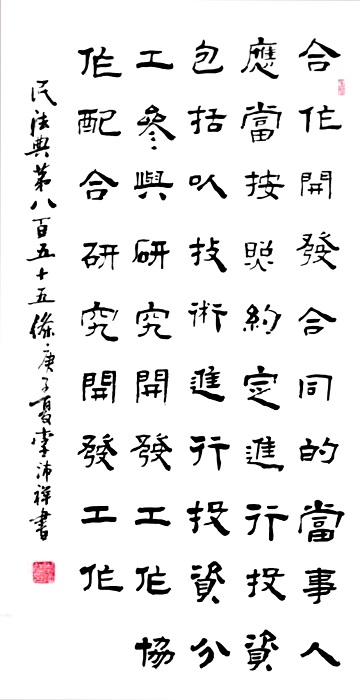 合作開發合同的當事人
應當按照約定進行投資
包括以技術進行投資分
工參與研究開發工作協
作配合研究開發工作
民法典第八百五十五條庚子夏李沛祥書